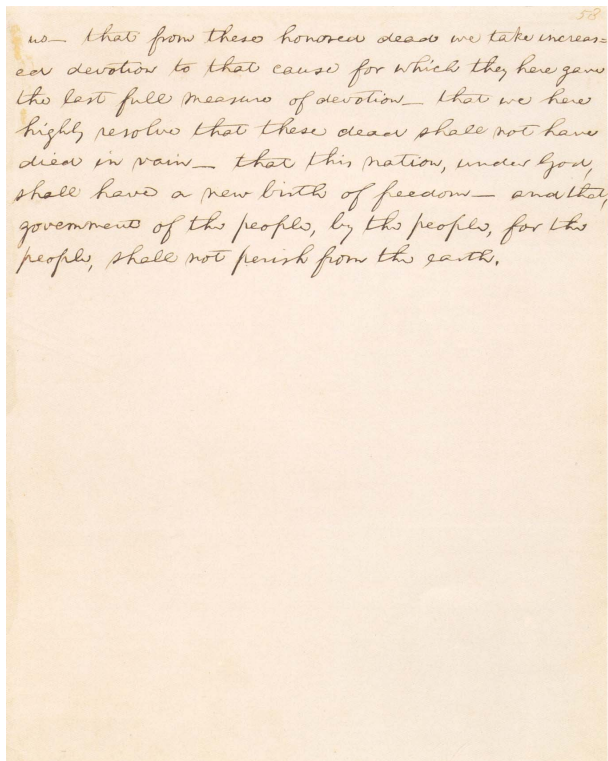 58
us— that from these honored dead we take increas=
ed devotion to that cause for which they here gave
the last full measure of devotion— that we here
highly resolve that these dead shall not have
died in vain— that this nation, under God,
shall have a new birth of freedom— and that,
government of the people, by the people, for the
people, shall not perish from the earth.